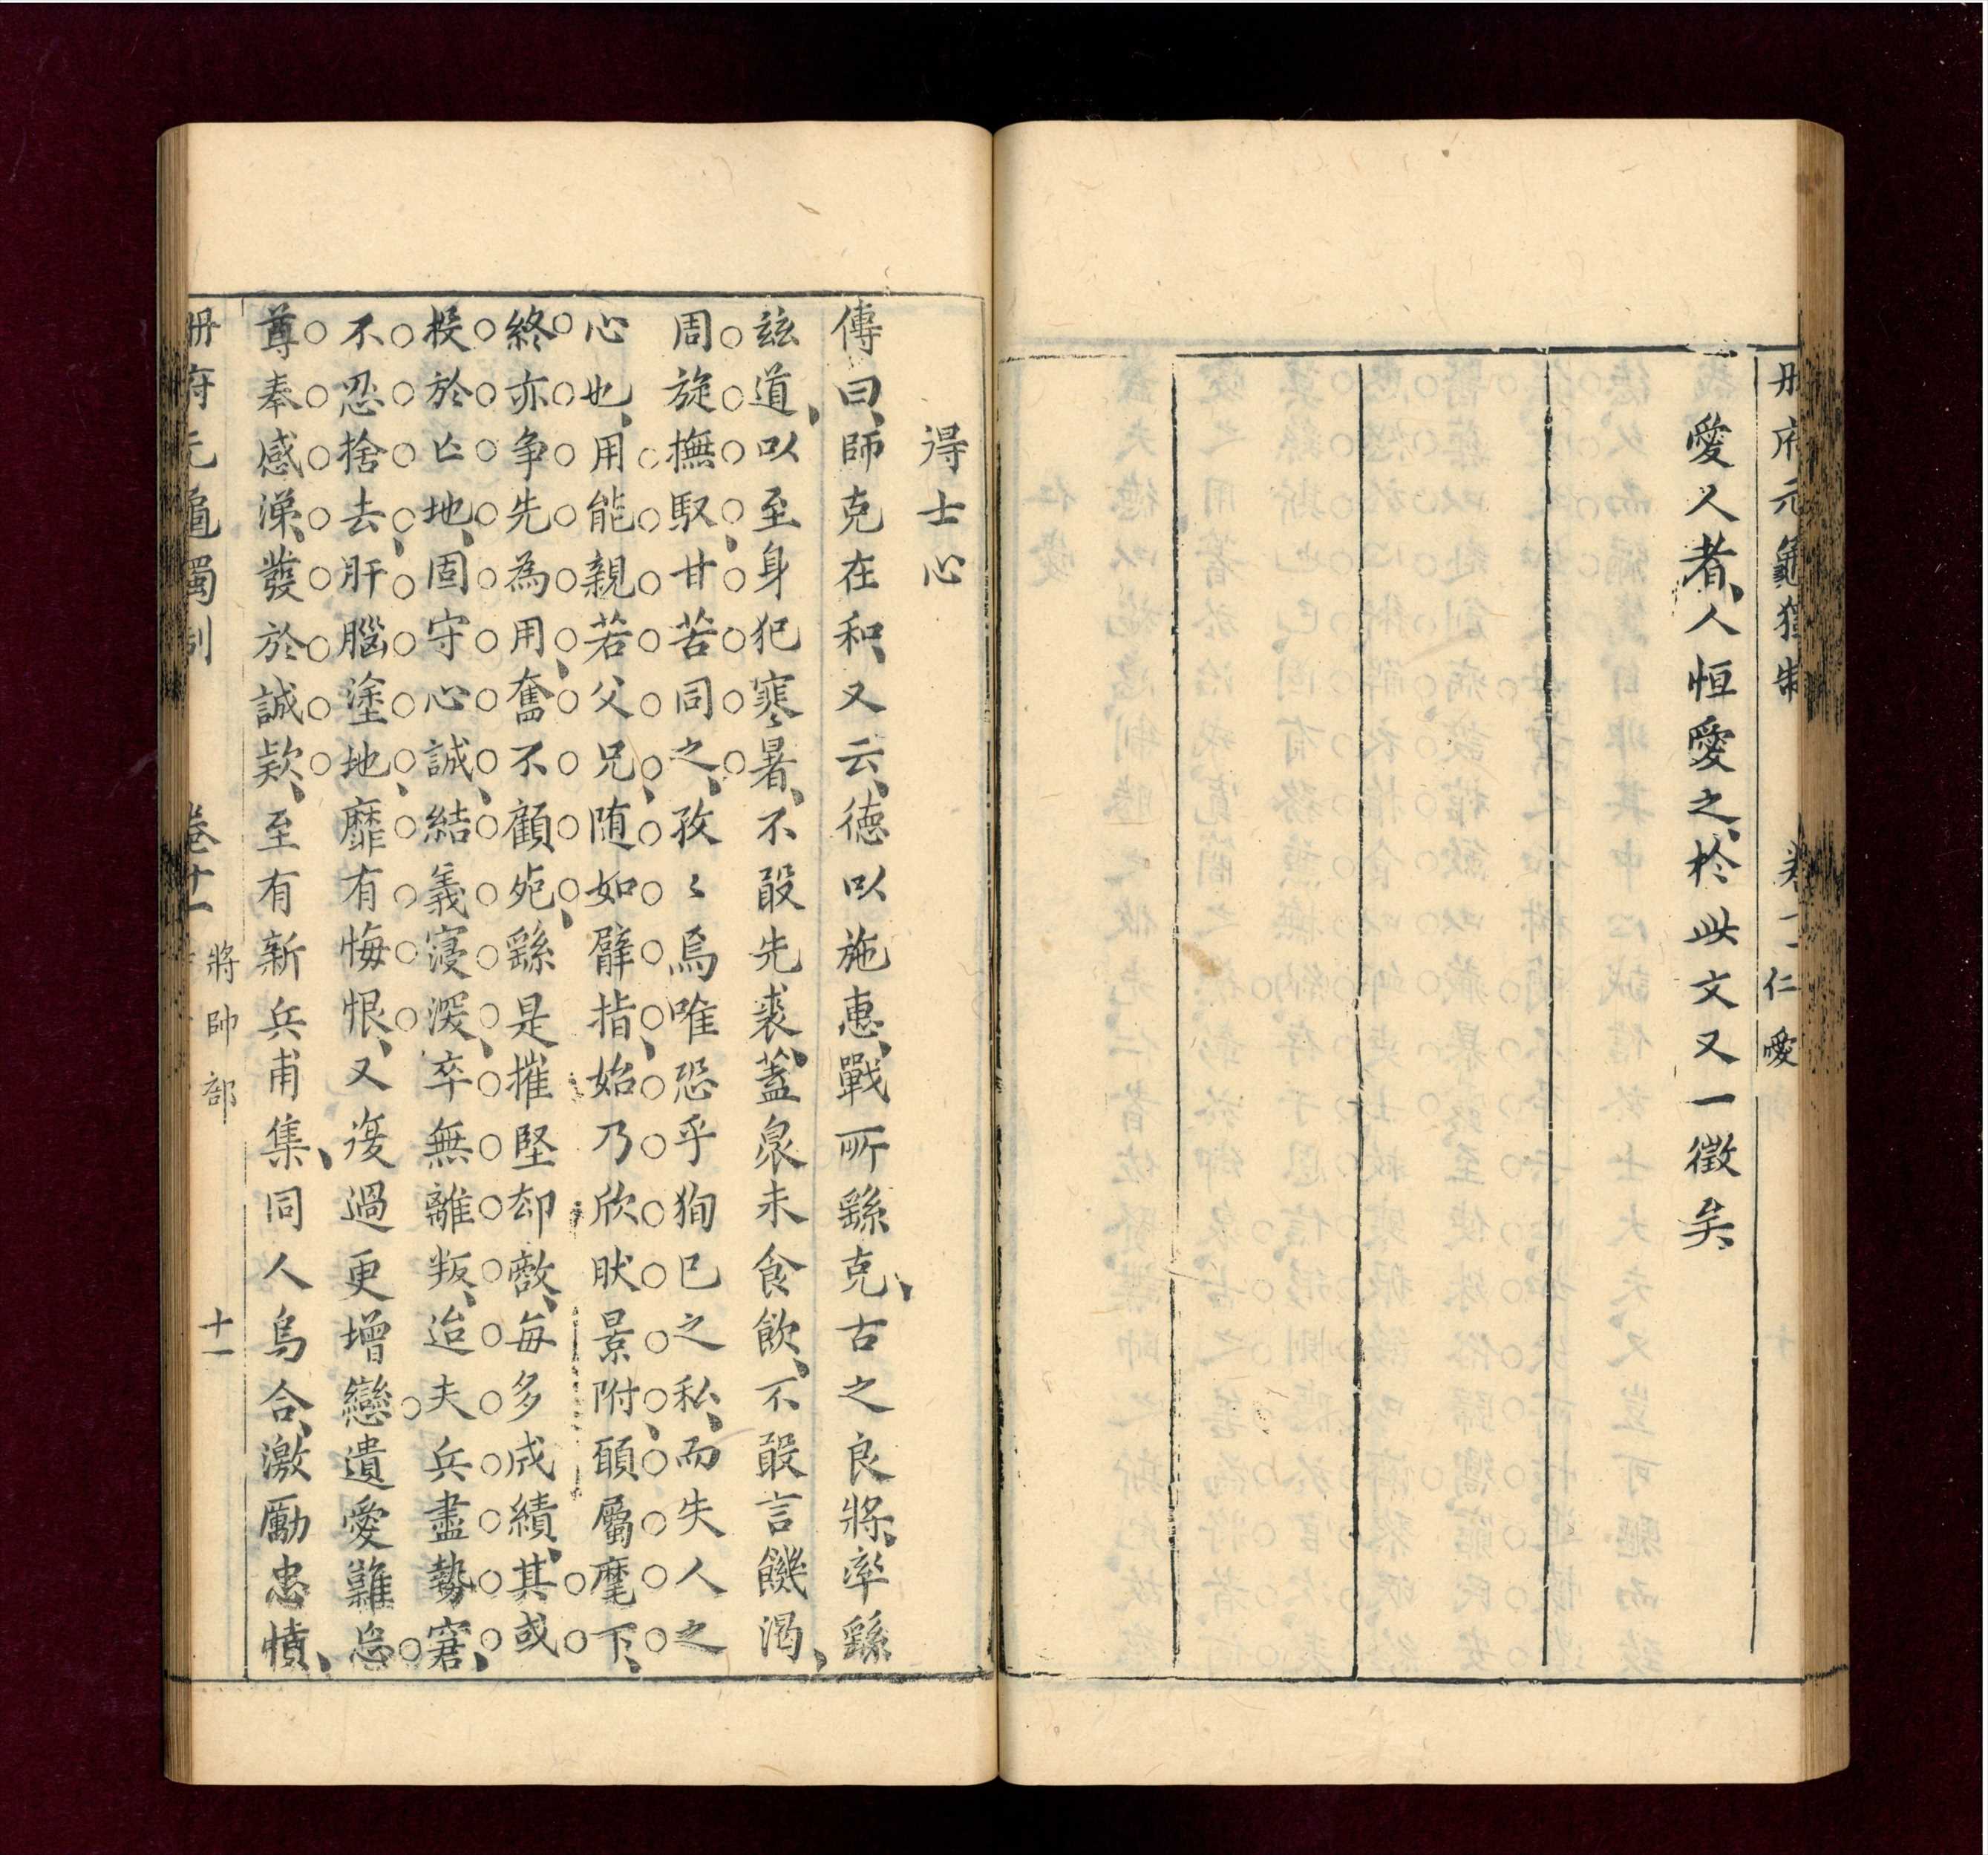 冊府元龜獨制 卷十一 仁愛
愛人者人恒愛之於此文又一徵矣
得士心
傳曰師克在和又云德以施惠戰所繇克古之良將率繇
茲道以至身犯寒暑不敢先裘蓋泉未食飲不敢言饑渴
周旋撫馭甘苦同之孜〻焉唯恐乎狥己之私而失人之
心也用能親若父兄随如臂指始乃欣肰景附頋屬麾下
終亦争先為用奮不顧死繇是摧堅却敵每多成績其或
投於亡地固守心誠結義寖深卒無離叛迨夫兵盡勢窘
不忍捨去肝腦塗地靡有悔恨又復過更增戀遺愛難忘
尊奉感涕發於誠欵至有新兵甫集同人烏合激勵忠憤
冊府元龜獨制 卷十一 將帥部 十一